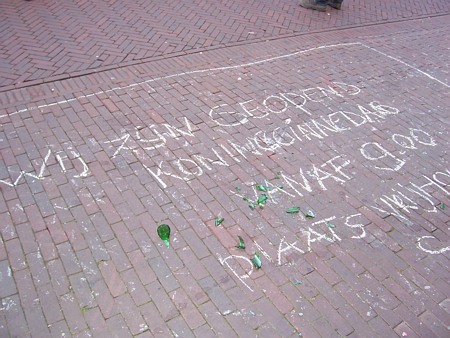 WIJ ZIJN GEOPEND
KONINGGINNEDAG
VANAF 900
PLAATS VRIJHO